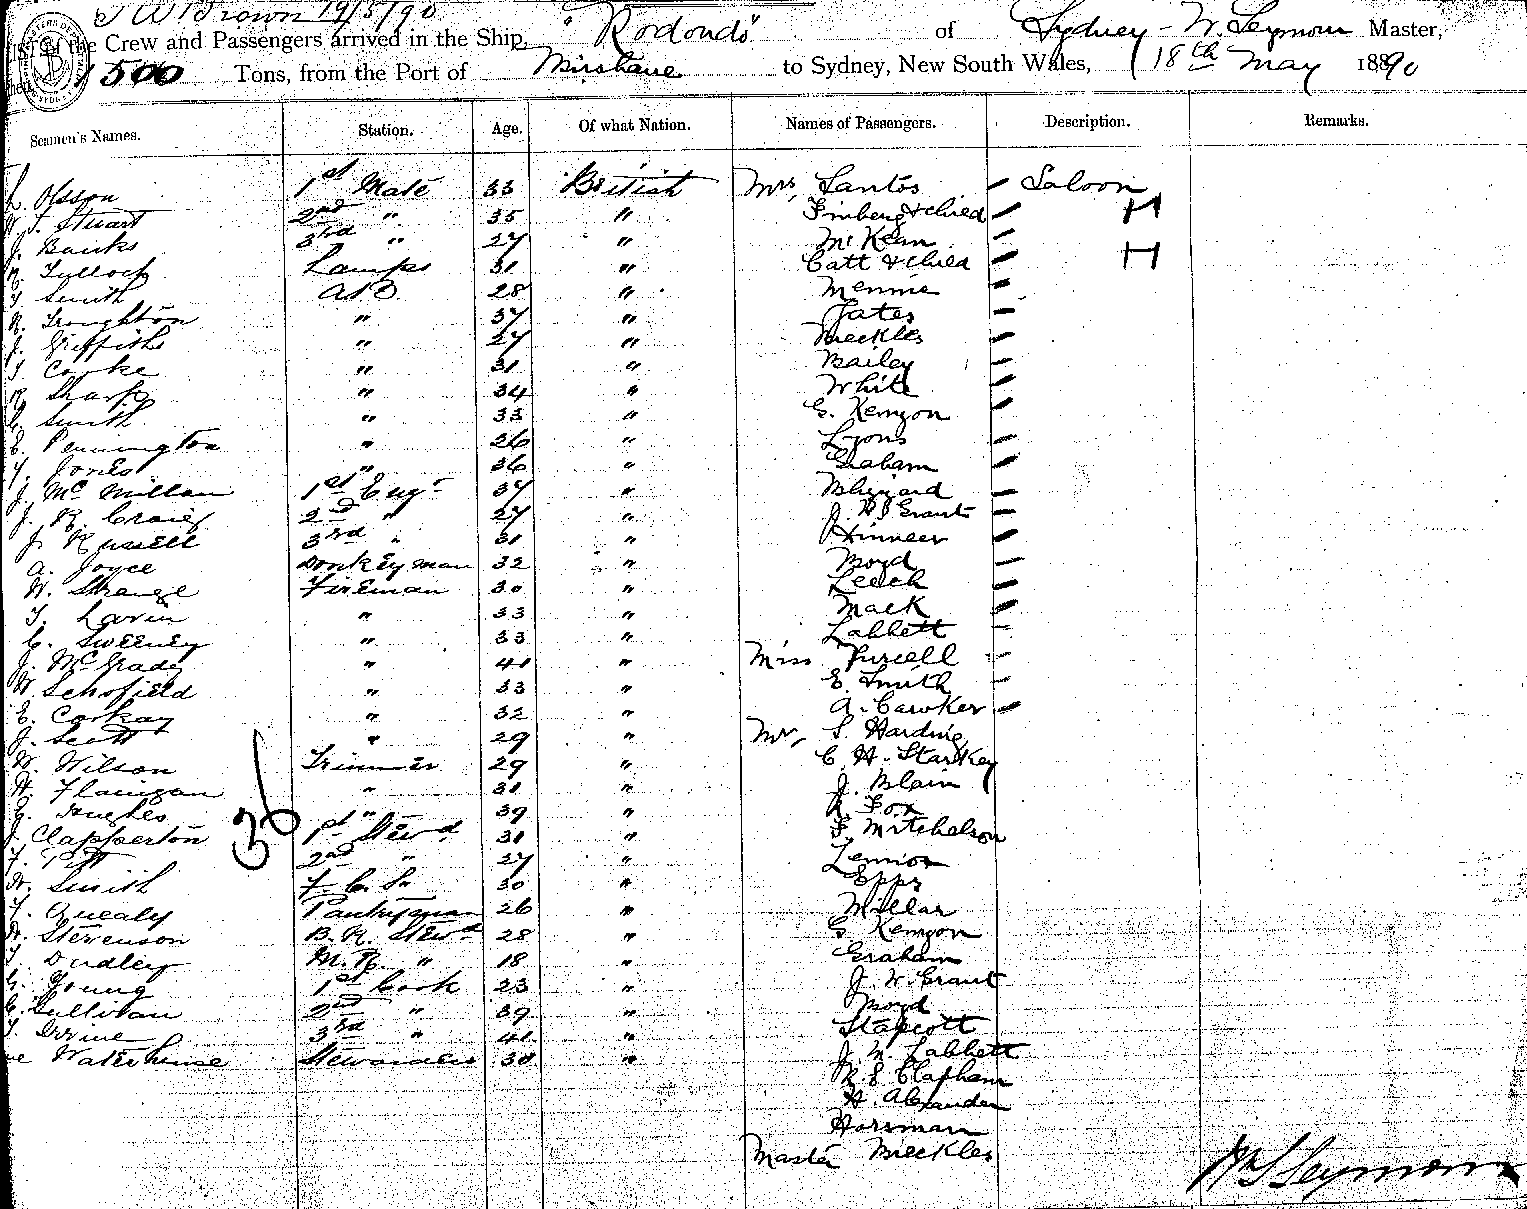 J W Brown 19/5/90
LIST of the Crew and Passengers arrived in the Ship "Rodondo" of Sydney - W. Seymour Master,
1500 Tons, from the Port of Brisbane to Sydney, New South Wales, 18th May 1890
Seamen's Names. Station. Age. Of what Nation. Names of Passengers. Description. Remarks.
L. Olsson 1st Mate 33 British Mrs, Santos Saloon
W. J. Stuart 2nd " 35 " Finberg & child H
J. Banks 3rd " 27 " McKean
R. Tulloch Lamps 31 " Catt & child H
T. Smith AB 28 " Mennie
R. Troughton " 37 " Yates
J. Griffiths " 27 " Meckles
T. Cooke " 31 " Bailey
R. Sharp " 34 " White
C. Smith " 33 " G. Kemyon
E. Pennington " 26 " Lyons
T. Jones " 36 " Graham
J. McMillan 1st Engr 37 "
J. R. Craig 2nd " 27 " J. W. Grant
J. Russell 3rd " 31 "
A. Joyce Donkeyman 32 " Boyd
W. Strange Fireman 30 " Leech
T. Lavin " 33 " Mack
C. Sweeney " 33 " Labbett
J. McGrady " 41 " Miss Purcell
W. Schofield " 33 " E. Smith
E. Corkay " 32 " A. Cawker
J. Scott " 29 " Mr, S. Harding
W. Wilson Trimmer 29 " C. H. Starkey
H. Flanigan " 31 " J. Blain
G. Hughes " 39 " R. Fox
J. Clapperton 1st Stewd 31 " F. Mitchelson
T. Pitt 2nd " 27 " Lennox
W. Smith F. C. S. 30 " Epps
T. Quealy Pantryman 26 " Millar
R. Stevenson B. R. Stewd 28 " G Kemyon
T. Dudley M. R. " 18 " Graham
G. Young 1st Cook 23 " J. W. Grant
C. Sullivan 2nd " 39 " Boyd
T. Irvine 3rd " 41 " Stapcott
Waterhouse Stewardess 30 " J. M. Labbett
R. E. Clapham
H. Alexander
Horsman
Master Meckles
36
Wm S Seymour